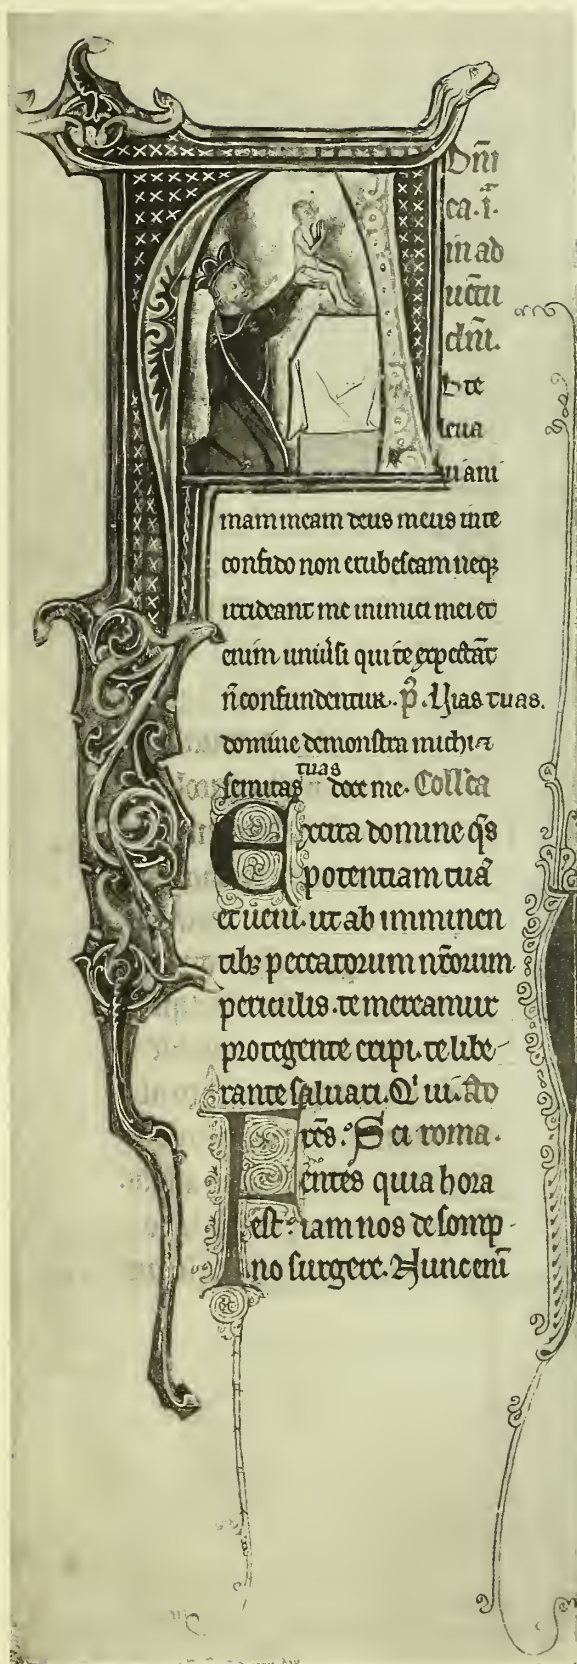 Dñi
ca .i.
in ad
uētu
dñi.
D te
leua
ui ani
mam meam deus meus in te
confido non erubescam neqꝫ
irrideant me inimici mei et
enim uniũsi qui te expectāt
ñ confundentur. p̃. Uias tuas.
domine demonstra michi ⁊
semitas tuas doce me. Coll̃ca
Excita domine q̃s
potentiam tuā
et ueni. ut ab imminen
tibꝫ peccatorum nr̃orum
periculis. te mereamur
protegente eripi. te libe-
rante saluari. Q̃ ui. Ad
Fres. Sci roma.
entes quia hora
est. iam nos de somp-
no surgere. Nunc eni̅